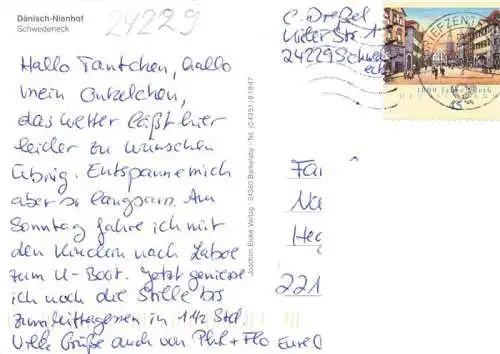 Dänisch-Nienhof
Schwedeneck
24229
Hallo Tantchen, hallo
mein Onkelchen,
das Wetter läßt hier
leider zu wünschen
übrig. Entspanne mich
aber so langsam. Am
Sonntag fahre ich mit
den Kindern nach Laboe
zum U-Boot. Jetzt genieße
ich noch die Stille bis
zum Mittagessen in 1 1/2 Std.
Viele Grüße auch von Phil + Flo Eure C
Joachim Euke Verlag · 24360 Barkelsby · Tel. (04351) 81847
C. Dreßel
24229 Schwed
eck
BRIEFZENT
1000 Jahre
Fa
Na
He
221